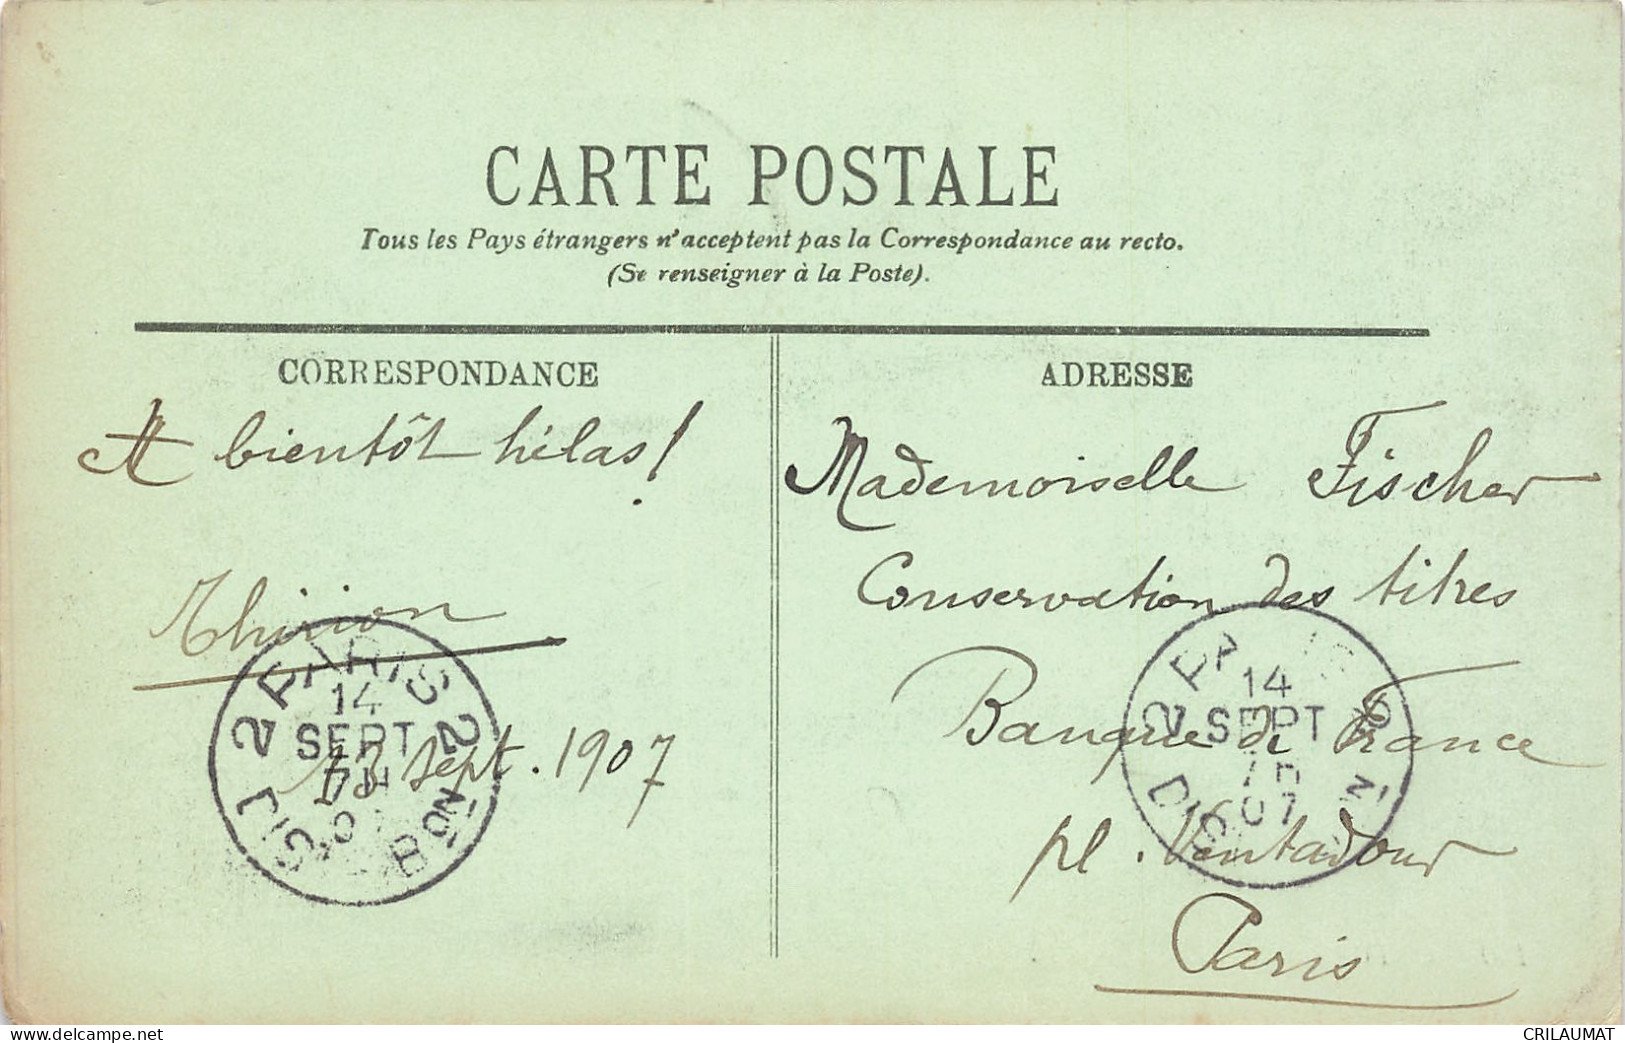 CARTE POSTALE
Tous les Pays étrangers n'acceptent pas la Correspondance au recto.
(Se renseigner à la Poste).
CORRESPONDANCE
A bientôt hélas!
Thirion
13 Sept. 1907
PARIS 2
14
SEPT
DISTRIBON
ADRESSE
Mademoiselle Fischer
Conservation des titres
Banque de France
pl. Ventadour
Paris
14
SEPT
07
delcampe.net
CRILAUMAT